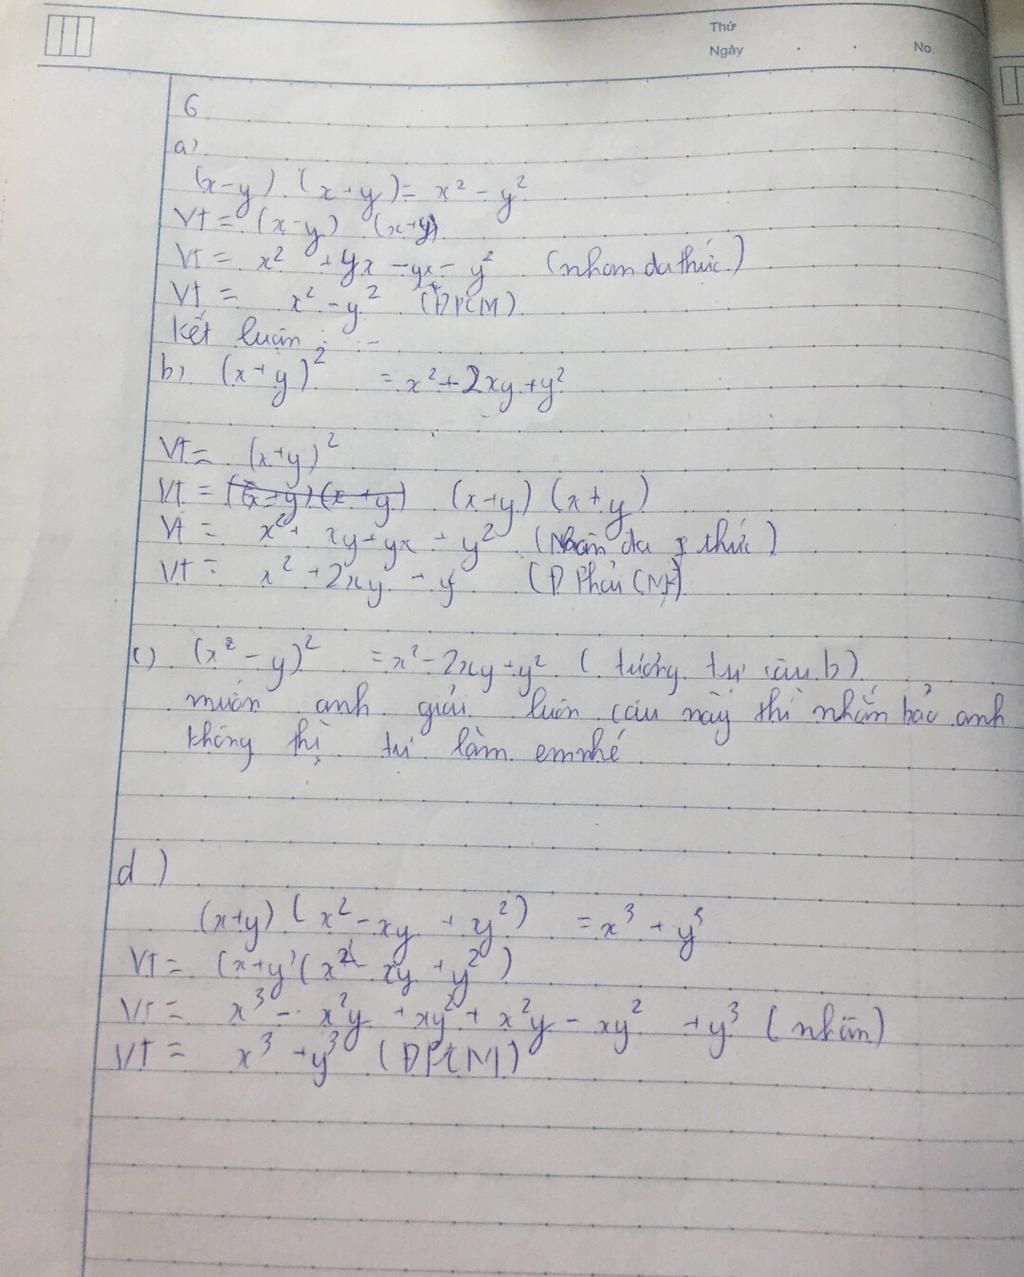 Thứ
Ngày . . No.
6
a)
(x-y) . (x+y) = x² - y²
VT = (x-y) (x+y)
VT = x² + yx - yx - y² (nhân đa thức)
VT = x² - y² (ĐPCM)
Kết luận : ...
b) (x+y)² = x² + 2xy + y²
VT = (x+y)²
VT = (x+y) (x+y)
VT = x² + xy + yx + y² (Nhân đa thức)
VT = x² + 2xy + y (Đ Phải CM)
c) (x² - y)² = x² - 2xy + y² (tương tự câu b)
muốn anh giải luôn câu này thì nhắn bảo anh
không thì tự làm em nhé
d)
(x+y) (x² - xy + y²) = x³ + y³
VT = (x+y) (x² - xy + y²)
VT = x³ - x²y + xy² + x²y - xy² + y³ (nhân)
VT = x³ + y³ (ĐPCM)